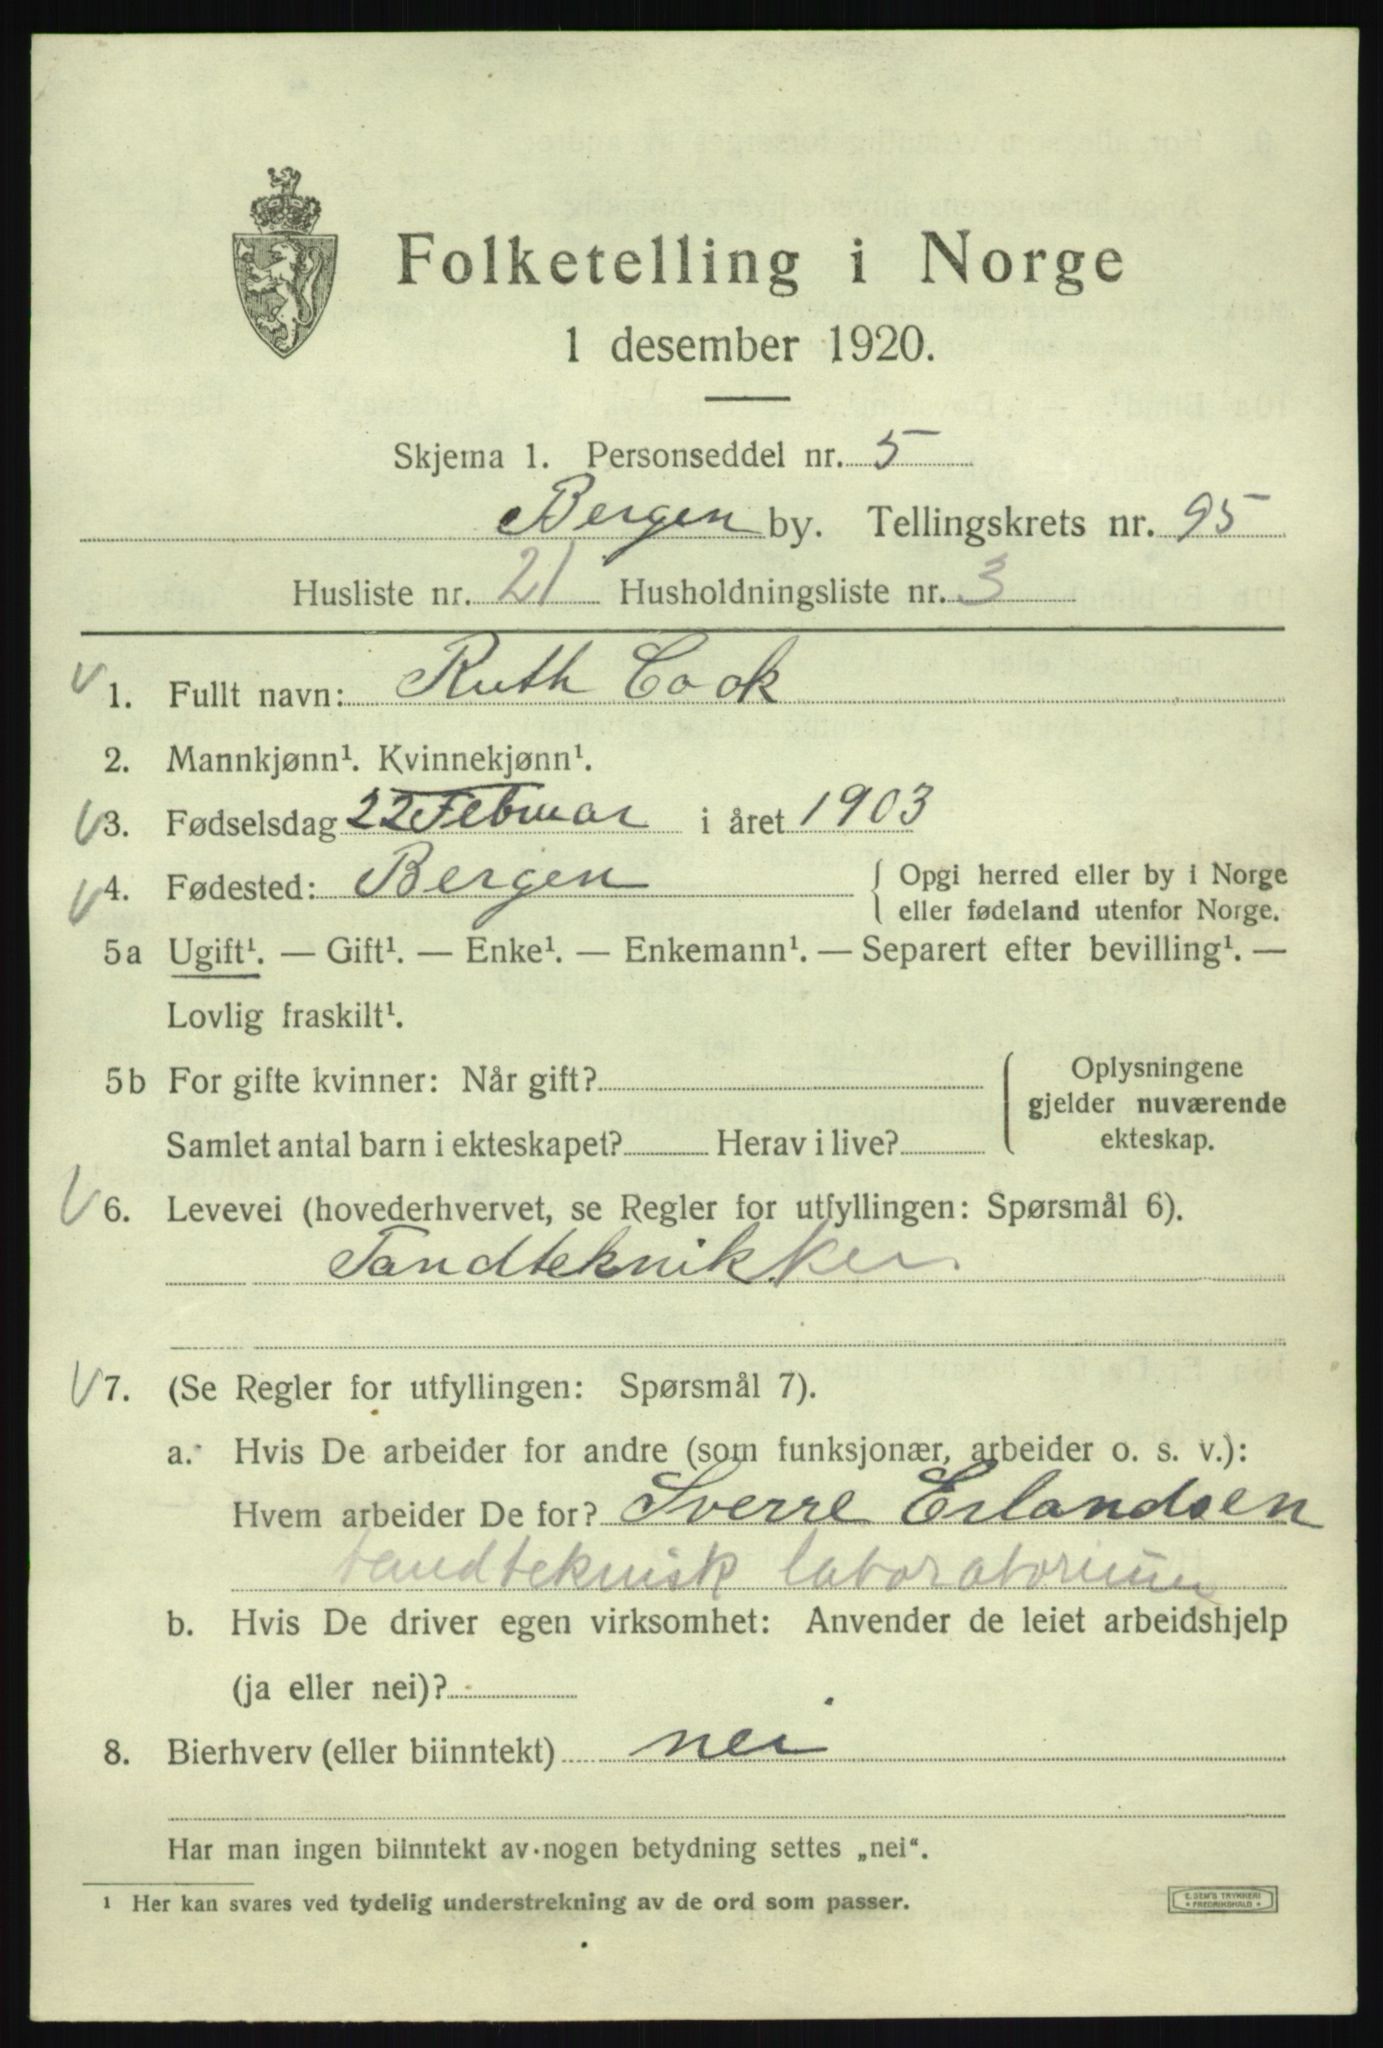 Folketelling i Norge
1 desember 1920.
Skjema 1. Personseddel nr. 5
Bergen by. Tellingskrets nr. 95
Husliste nr. 21 Husholdningsliste nr. 3
1. Fullt navn: Ruth Cook
2. Mannkjønn¹. Kvinnekjønn¹.
3. Fødselsdag 22 Februar i året 1903
4. Fødested: Bergen { Opgi herred eller by i Norge
eller fødeland utenfor Norge.
5a Ugift¹. — Gift¹. — Enke¹. — Enkemann¹. — Separert efter bevilling¹. —
Lovlig fraskilt¹.
5b For gifte kvinner: Når gift? { Oplysningene
gjelder nuværende
Samlet antal barn i ekteskapet? Herav i live? ekteskap.
6. Levevei (hovederhvervet, se Regler for utfyllingen: Spørsmål 6).
Tandteknikker
7. (Se Regler for utfyllingen: Spørsmål 7).
a. Hvis De arbeider for andre (som funksjonær, arbeider o. s. v.):
Hvem arbeider De for? Sverre Erlandsen
tandteknisk laboratorium
b. Hvis De driver egen virksomhet: Anvender de leiet arbeidshjelp
(ja eller nei)?
8. Bierhverv (eller biinntekt) nei
Har man ingen biinntekt av nogen betydning settes „nei“.
¹ Her kan svares ved tydelig understrekning av de ord som passer.
E. SEM'S TRYKKERI
* FREDRIKSHALD *